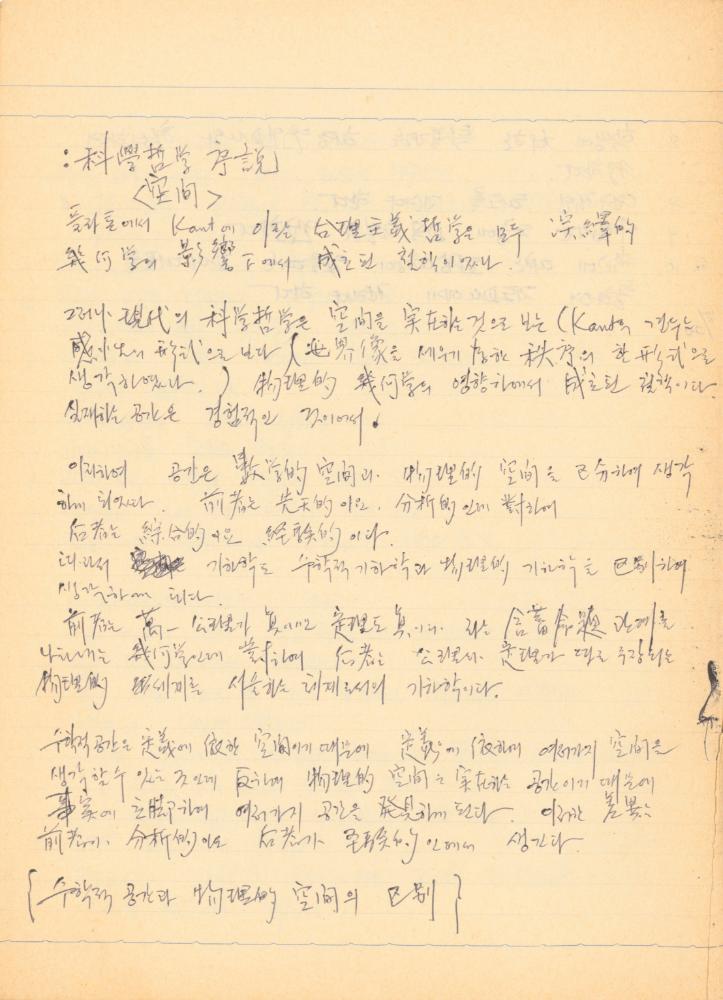 : 科學哲学 序説
<空间>
플라톤에서 Kant에 이른 合理主義 哲学은 모두 演繹的
幾何学의 影響下에서 成立된 철학이었다.
그러나 現代의 科学哲学은 空间을 実在하는 것으로 보는 (Kant의 경우는
感性의 形式으로 보다 (世界像을 세우기 위한 秩序의 한 形式으로
생각하였다.) 物理的 幾何学의 영향하에서 成立된 철학이다.
실재하는 공간은 경험적인 것이어서.
이리하여 공간은 數学的 空间과 物理的 空间을 区分하여 생각
하게 되었다. 前者는 先天的이요, 分析的인데 對하여
后者는 綜合的이요 経験的이다.
따라서 기하학도 수학적 기하학과 物理的 기하학을 区別하여
생각하게 된다.
前者는 萬一 公理가 真이면 定理도 真이다. 라는 含蓄命題 관계를
나타내는 幾何学인데 對하여 后者는 公理와 定理가 따로 주장되는
物理的 세계를 서술하는 체계로서의 기하학이다.
수학적 공간은 定義에 依한 空间이기 때문에 定義에 依하여 여러가지 空间을
생각할 수 있는 것인데 反하여 物理的 空间은 実在하는 공간이기 때문에
事実에 立脚하여 여러가지 공간을 発見하게 된다. 이러한 差異는
前者가 分析的이요 后者가 経験的인데서 생긴다.
{ 수학적 공간과 物理的 空间의 区別 }